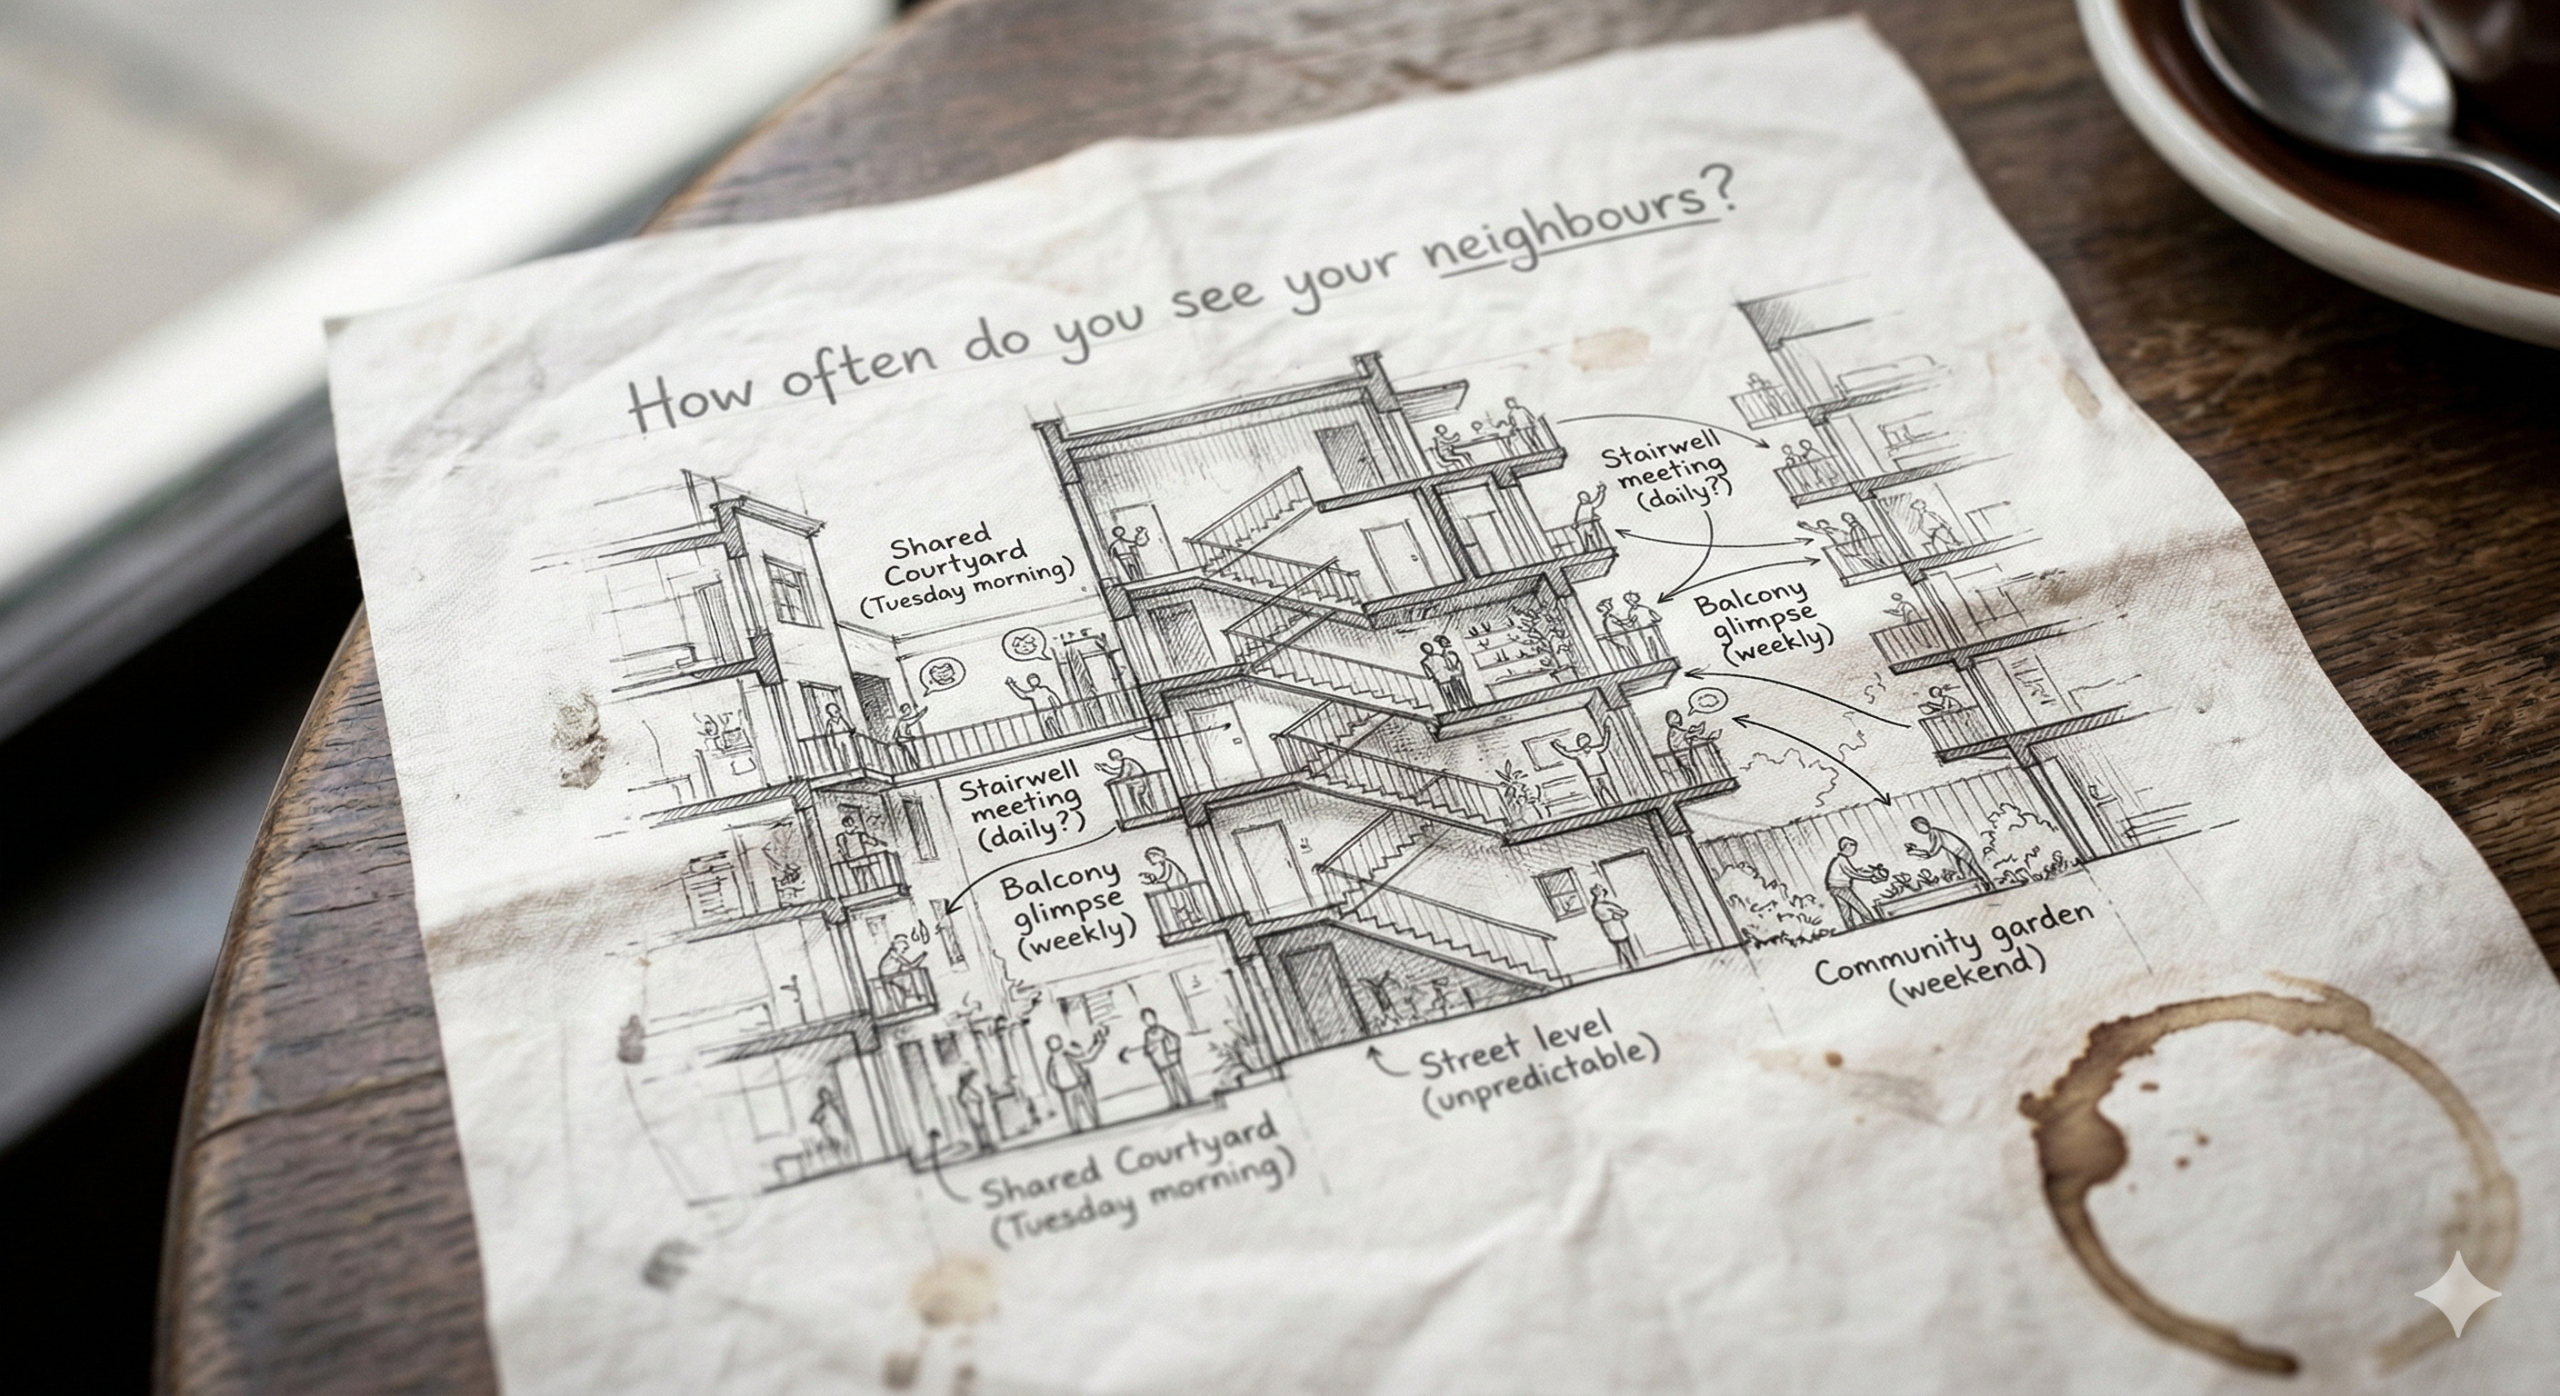 How often do you see your neighbours?
Shared
Courtyard
(Tuesday morning)
Stairwell
meeting
(daily?)
Balcony
glimpse
(weekly)
Stairwell
meeting
(daily?)
Balcony
glimpse
(weekly)
Community garden
(weekend)
Street level
(unpredictable)
Shared Courtyard
(Tuesday morning)